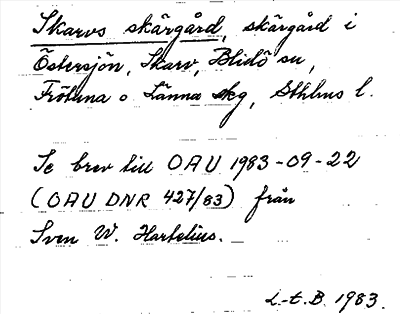 Skarvs skärgård, skärgård i
Östersjön, Skarv, Blidö sn,
Frötuna o Länna skg, Sthlms l.
Se brev till OAU 1983-09-22
(OAU DNR 427/83) från
Sven W. Hartelius.
L-t.B. 1983.